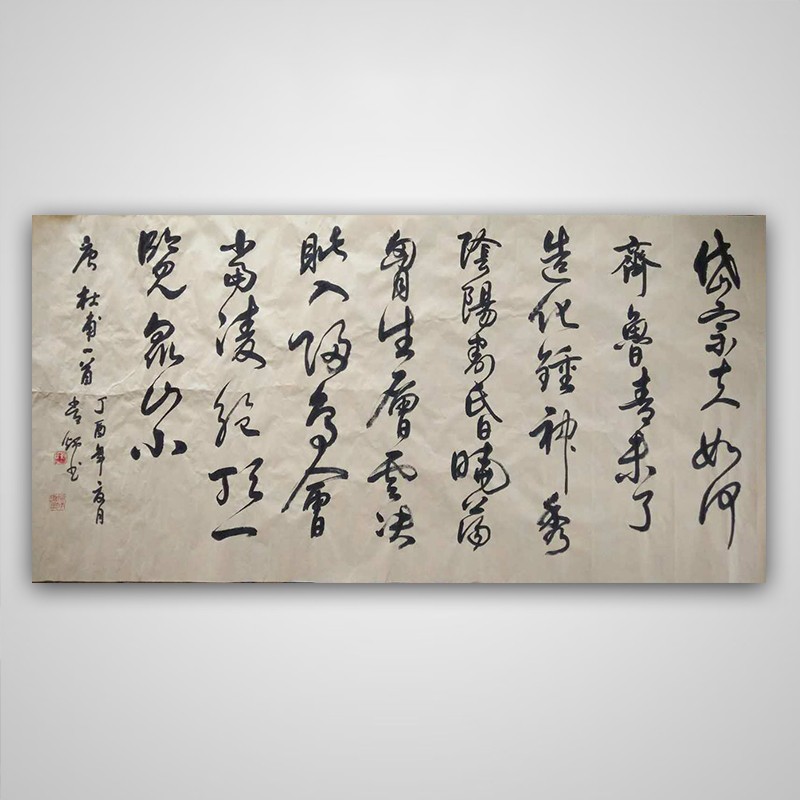 岱宗夫如何
齊魯青未了
造化鍾神秀
陰陽割昏曉蕩
胸生層雲決
眥入歸鳥會
當凌絕頂一
覽衆山小
唐杜甫一首
丁酉年夏月 書